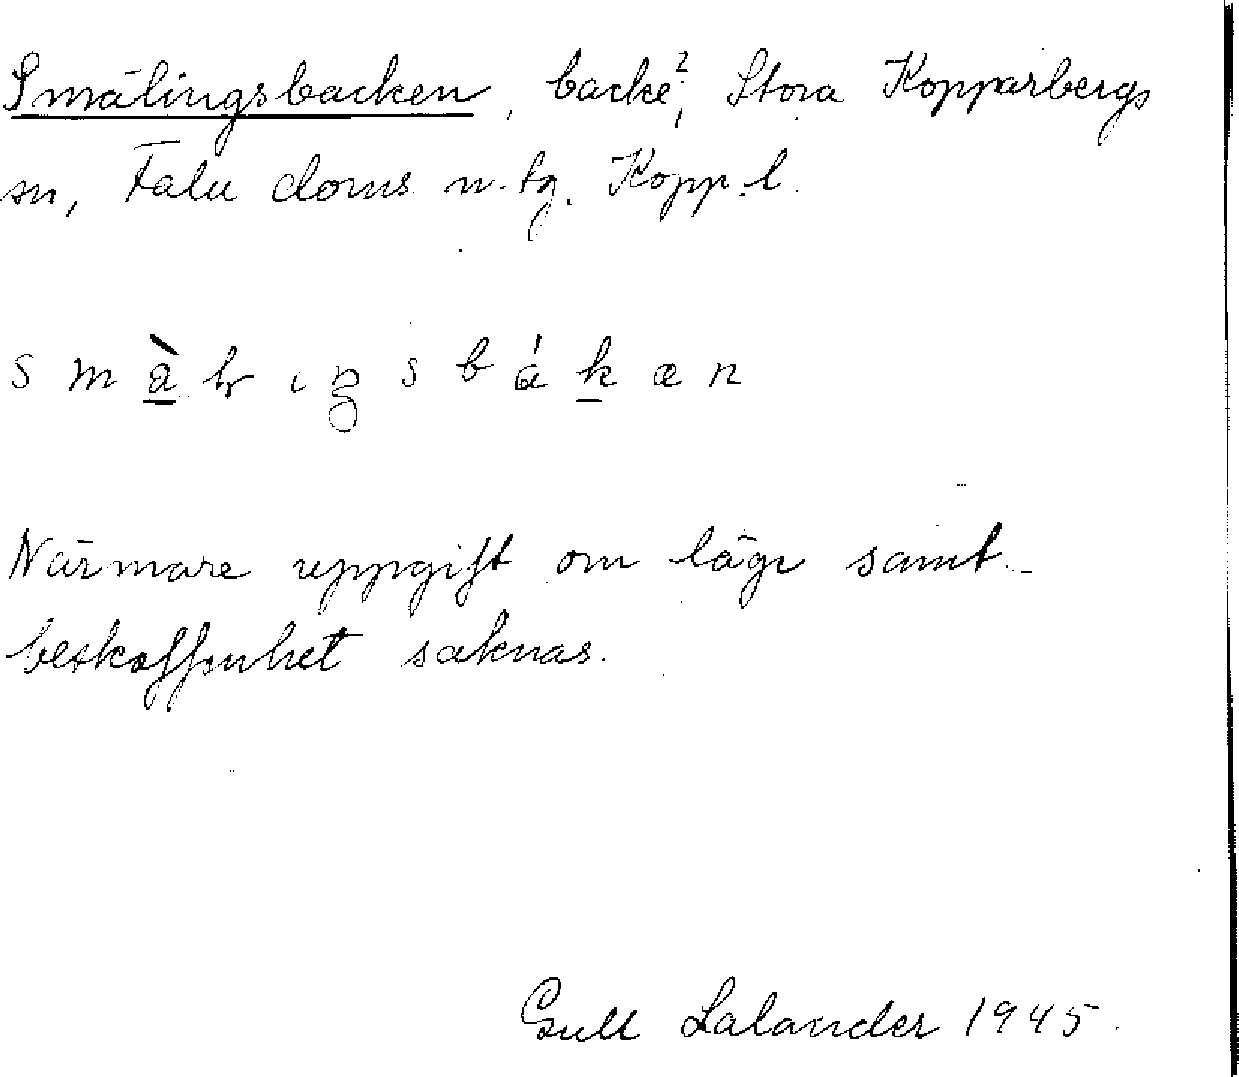 Smålingsbacken, backe?, Stora Kopparbergs
sn, Falu doms n. tg. Kopp. l.
s m à l ɩ ŋ s b á k æ n
Närmare uppgift om läge samt
beskaffenhet saknas.
Gull Lalander 1945.